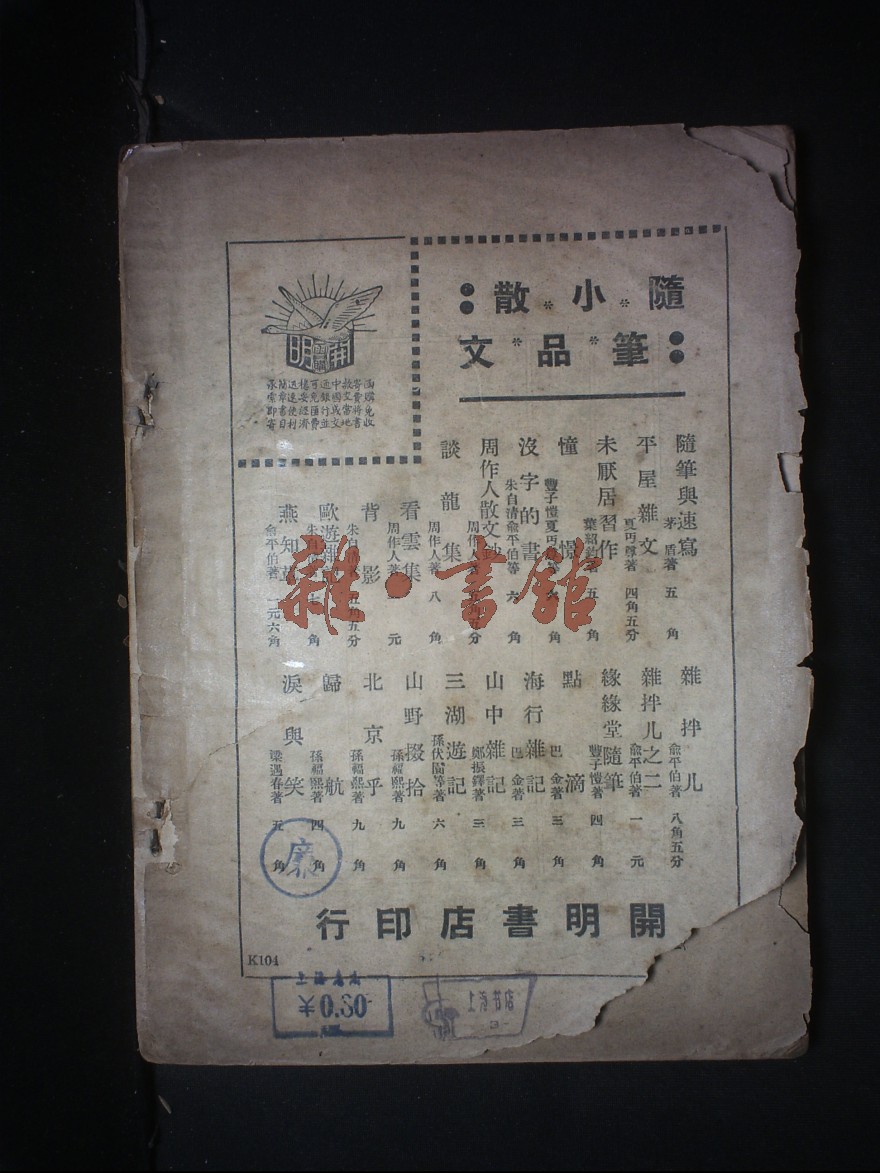 隨筆
小品
散文
開明
書店
函購免收
寄費將書
款立當地
中國或交
通銀行並
可免匯費
樓妥經濟
迅速便利
簡章書目
承索即寄
隨筆與速寫 茅盾著 五角
平屋雜文 夏丏尊著 四角五分
未厭居習作 葉紹鈞 五角
憧憬 豐子愷夏丏 等 六角
沒字的書 朱自清俞平伯等 六角
周作人散文鈔 周作人著 五分
談龍集 周作人著 八角
看雲集 周作人著 元
背影 朱自 五角五分
歐遊雜 朱自 七角
燕知草 俞平伯著 一元六角
雜拌儿 俞平伯著 八角五分
雜拌儿之二 俞平伯著 一元
緣緣堂隨筆 豐子愷著 四角
點滴 巴金著 三角
海行雜記 巴金著 三角
山中雜記 鄭振鐸著 三角
三湖遊記 孫伏園等著 六角
山野掇拾 孫福熙著 九角
北京乎 孫福熙著 九角
歸航 孫福熙著 四角
淚與笑 梁遇春著 五角
開明書店印行
K104
廉
¥0.30
雜·書館